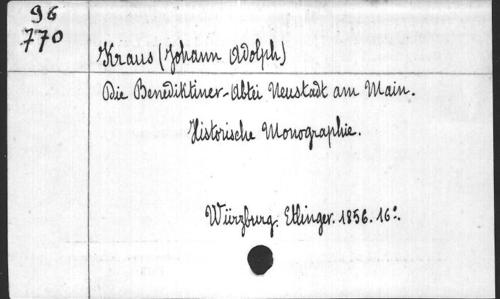 96
770
Kraus (Johann Adolph)
Die Benediktiner-Abtei Neustadt am Main.
Historische Monographie.
Würzburg. Etlinger. 1856. 16°.